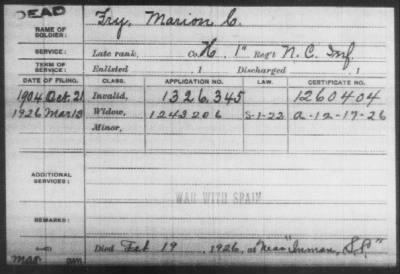 DEAD
NAME OF SOLDIER: Fry, Marion C.
SERVICE: Late rank, Co. H 1" Reg't N.C. Inf.
TERM OF SERVICE: Enlisted , 1 Discharged , 1
DATE OF FILING. CLASS. APPLICATION NO. LAW. CERTIFICATE NO.
1904 Oct. 21 Invalid, 1326,345 1260404
1926 Mar 13 Widow, 1243206 S-1-22 A-12-17-26
Minor,
ADDITIONAL SERVICES:
WAR WITH SPAIN
REMARKS:
Died Feb 19, 1926, at Near "Inman, S.C."